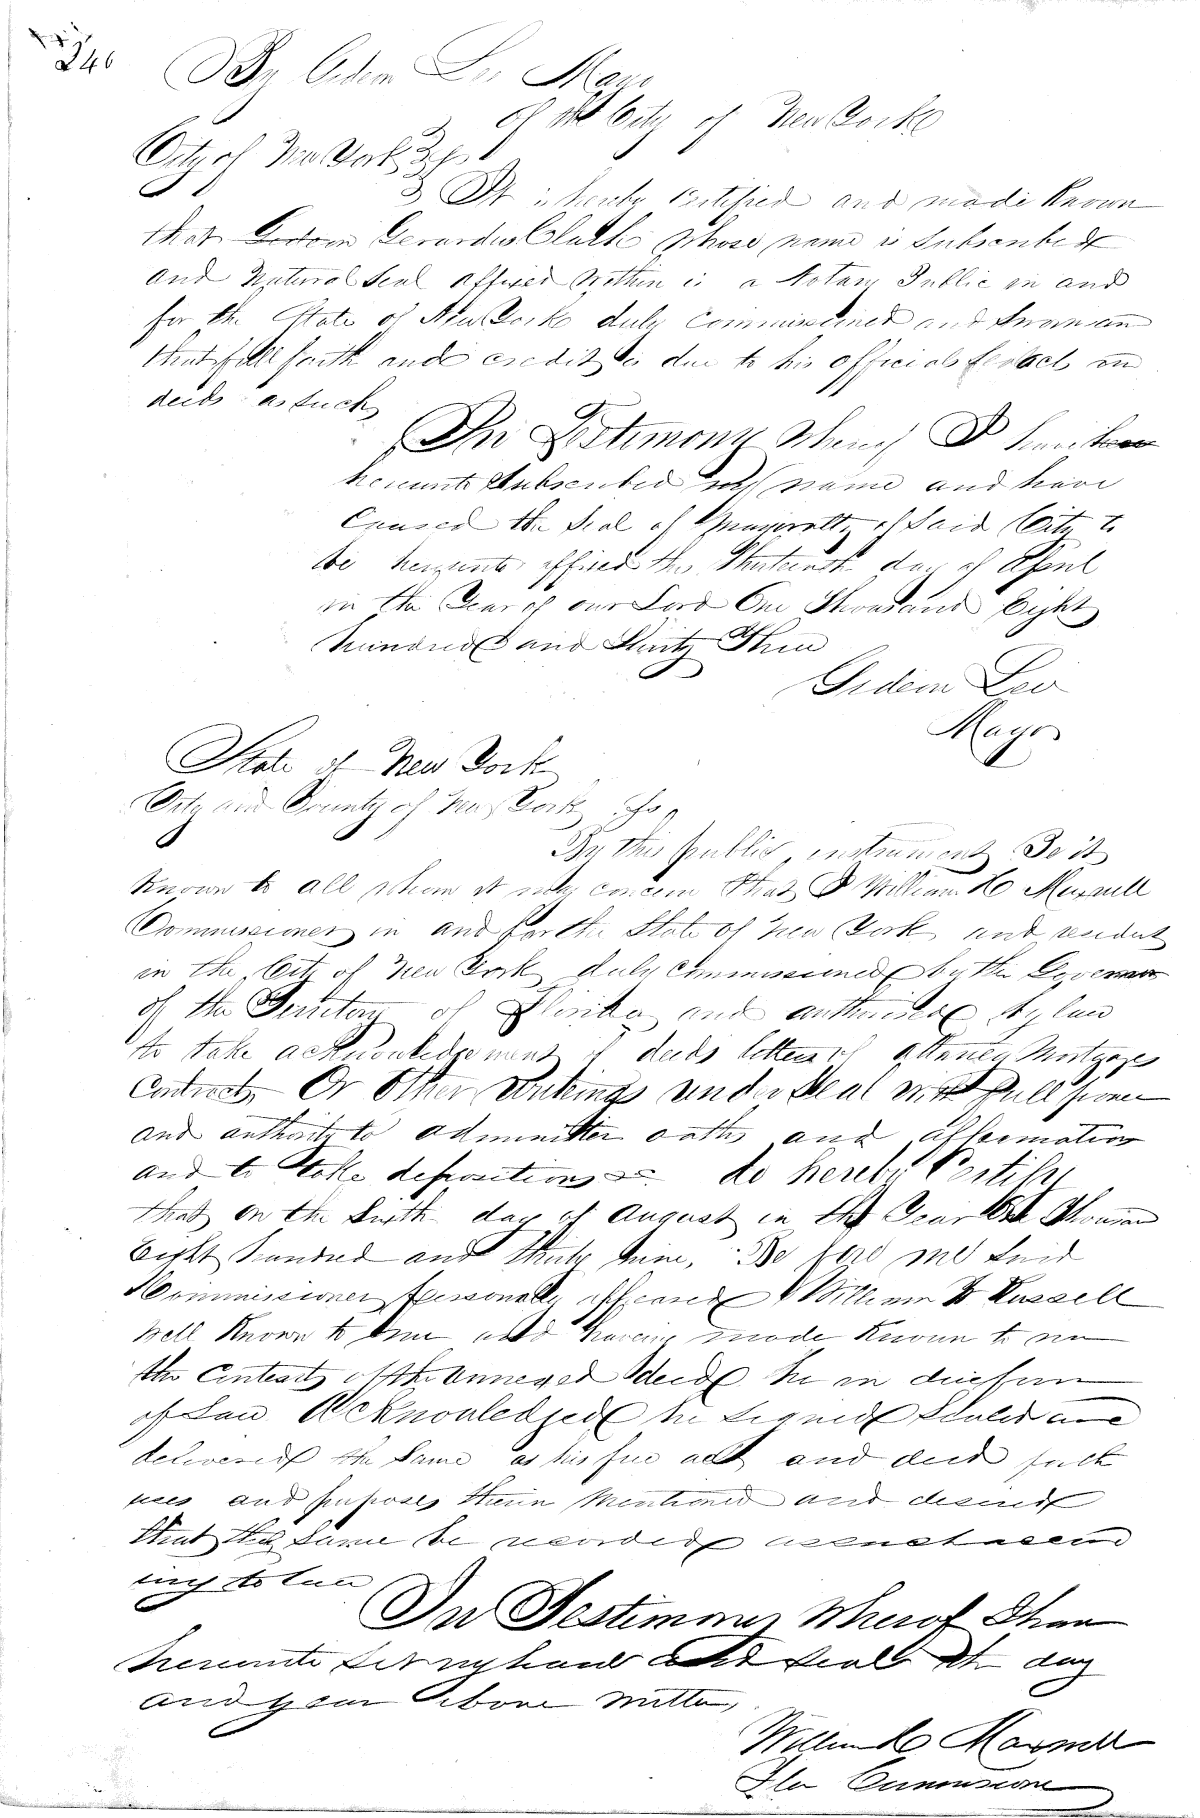 246
By Gideon Lee Mayor
Of the City of New York
City of New York ss
It is hereby Certified and made Known
that Gordoun Gerardus Clark whose name is Subscribed
and Notarial Seal affixed within is a Notary Public in and
for the State of New York duly Commissioned and Sworn and
that full faith and credit is due to his official acts and
deeds as such
In Testimony Whereof I have
hereunto Subscribed my name and have
Caused the Seal of Mayoralty of Said City to
be hereunto affixed this Thirteenth day of April
in the Year of our Lord One Thousand Eight
hundred and Thirty Three
Gideon Lee
Mayor
State of New York
City and County of New York Ss
By this public instrument Be it
Known to all whom it may concern that I William H Maxwell
Commissioner in and for the State of New York and resident
in the City of New York duly Commissioned by the Governor
of the Territory of Florida and authorised by law
to take acknowledgement of deeds letters of attorney Mortgages
Contracts Or Other Writings under Seal with full power
and authority to administer oaths and affirmations
and to take depositions &c do hereby Certify
that on the Sixth day of August in the Year One Thousand
Eight hundred and thirty nine, Before me Said
Commissioner personally appeared William H Russell
Well Known to me and having made Known to me
the Contents of the annexed deed he in due form
of Law Acknowledged he Signed Sealed and
delivered the Same as his free act and deed for the
uses and purposes therein Mentioned and desired
that the Same be recorded as such accord
ing to law
In Testimony Whereof I have
hereunto Set my hand and Seal the day
and year above written,
William H Maxwell
Flor Commissioner